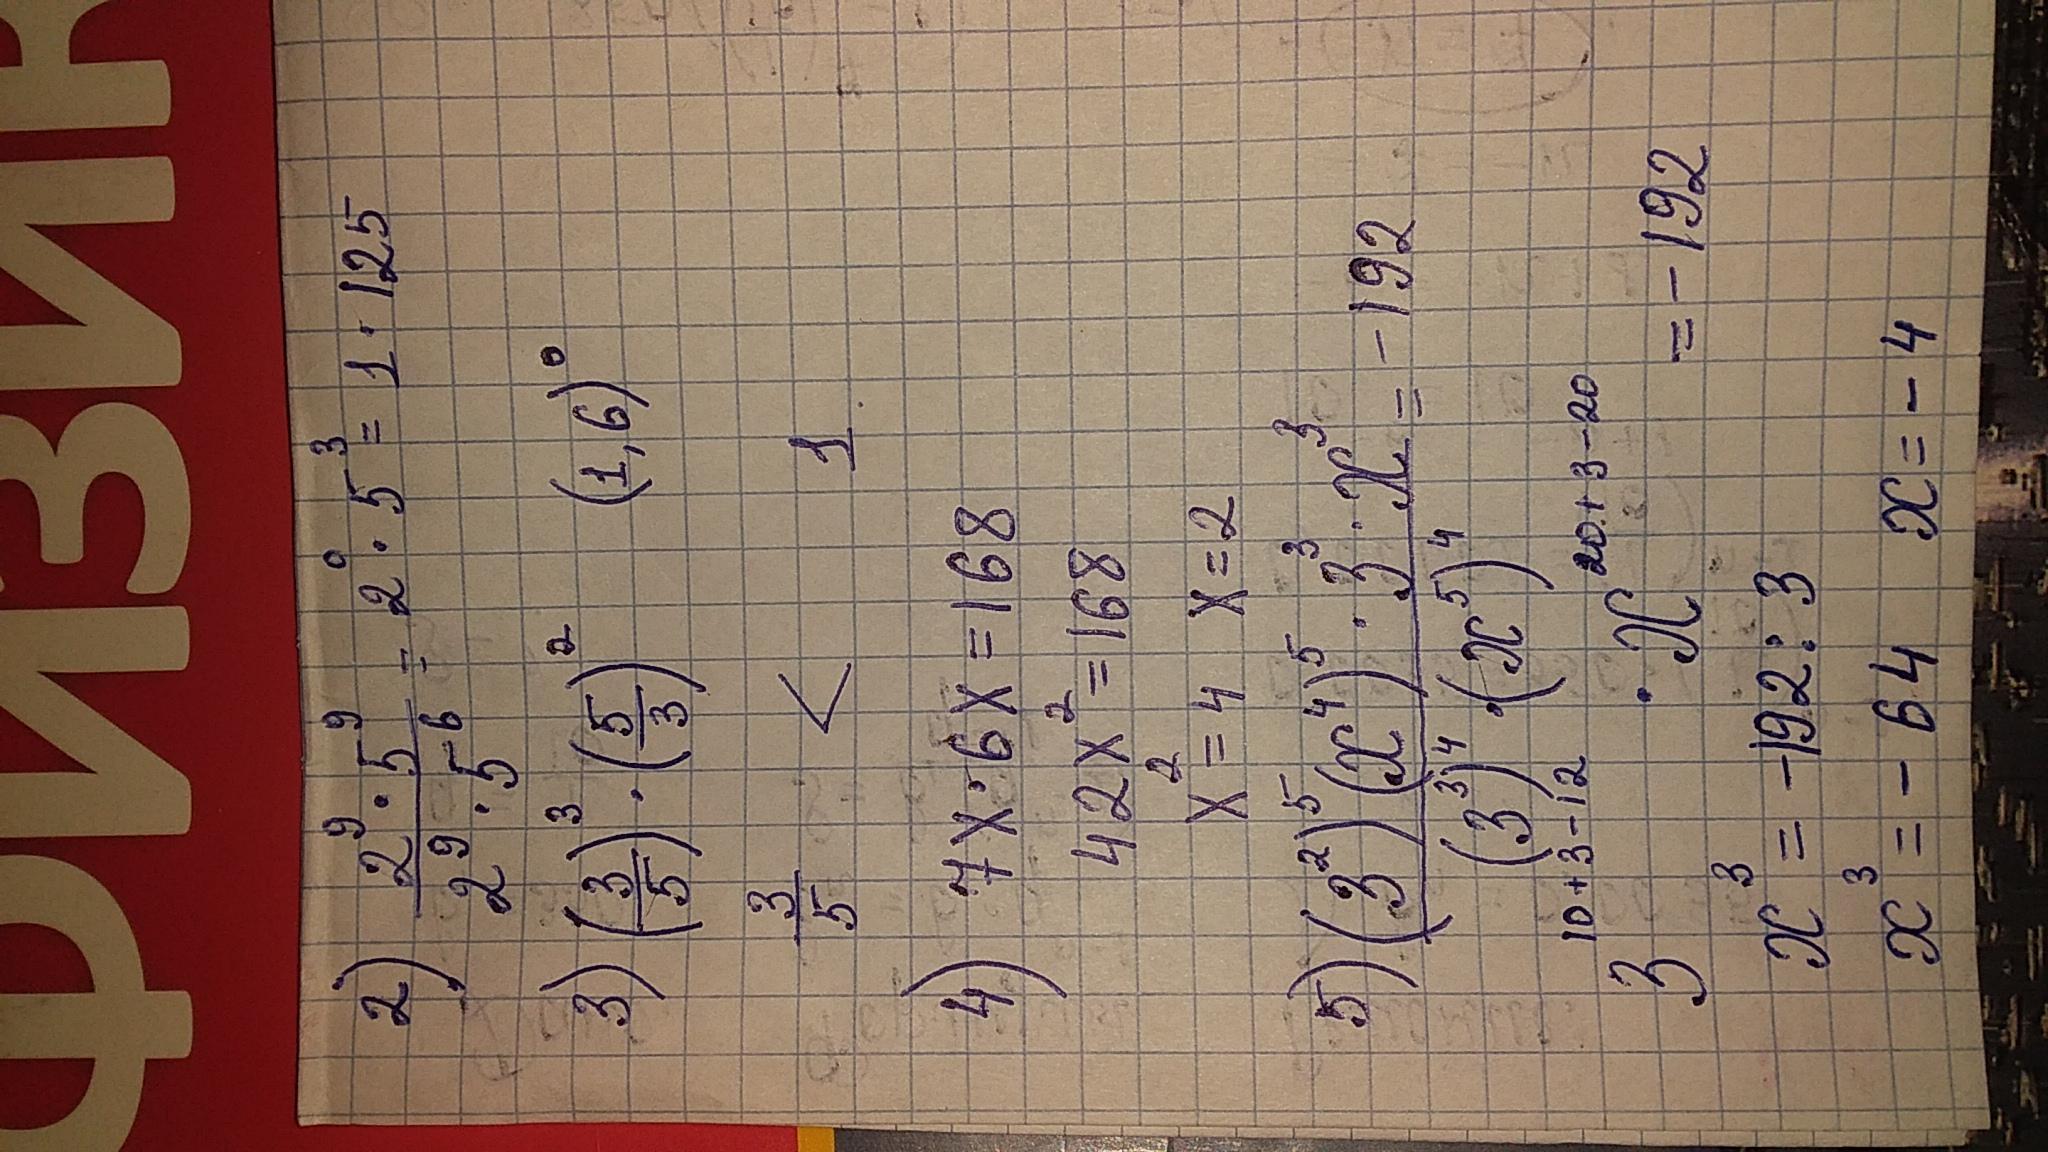 ФИЗИК
2) (2⁹ · 5⁹)/(2⁹ · 5⁶) = 2⁰ · 5³ = 1 · 125
3) (3/5)³ · (5/3)² (1,6)⁰
3/5 < 1
4) 7x · 6x = 168
42x² = 168
x² = 4 x = 2
5) ((3²)⁵ (x⁴)⁵ · 3³ · x³)/((3³)⁴ · (x⁵)⁴) = -192
3¹⁰⁺³⁻¹² · x²⁰⁺³⁻²⁰ = -192
x³ = -192 : 3
x³ = -64 x = -4